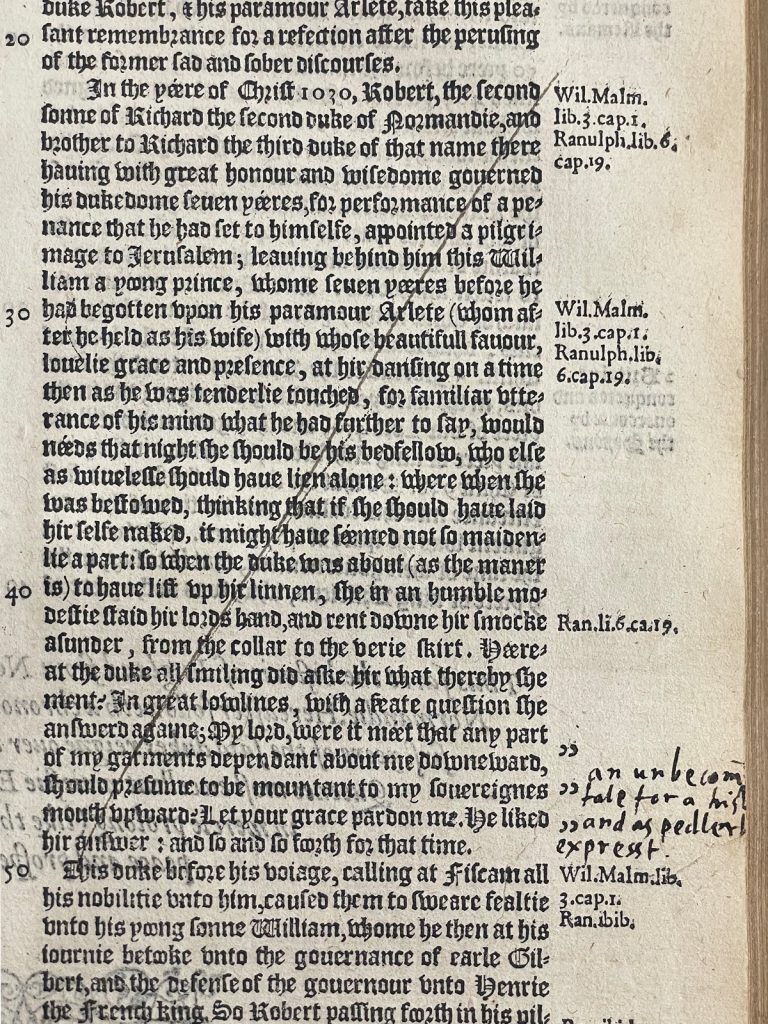 duke Robert, & his paramour Arlete, take this plea-
20 sant remembrance for a refection after the perusing
of the former sad and sober discourses.
In the yéere of Christ 1030, Robert, the second
sonne of Richard the second duke of Normandie, and
brother to Richard the third duke of that name there
hauing with great honour and wisedome gouerned
his dukedome seuen yéeres, for performance of a pe-
nance that he had set to himselfe, appointed a pilgri-
mage to Jerusalem; leauing behind him this Wil-
liam a yoong prince, whome seuen yéeres before he
30 had begotten vpon his paramour Arlete (whom af-
ter he held as his wife) with whose beautifull fauour,
louelie grace and presence, at hir dansing on a time
then as he was tenderlie touched, for familiar vtte-
rance of his mind what he had further to say, would
néeds that night she should be his bedfellow, who else
as wiuelesse should haue lien alone: where when she
was bestowed, thinking that if she should haue laid
hir selfe naked, it might haue séemed not so maiden-
lie a part: so when the duke was about (as the maner
40 is) to haue lift vp hir linnen, she in an humble mo-
destie staid hir lords hand, and rent downe hir smocke
asunder, from the collar to the verie skirt. Héere-
at the duke all smiling did aske hir what thereby she
ment? In great lowlines, with a feate question she
answerd againe; My lord, were it méet that any part
of my garments dependant about me downeward,
should presume to be mountant to my souereignes
mouth vpward? Let your grace pardon me. He liked
hir answer: and so and so foorth for that time.
50 This duke before his voiage, calling at Fiscam all
his nobilitie vnto him, caused them to sweare fealtie
vnto his yoong sonne William, whome he then at his
iournie betooke vnto the gouernance of earle Gil-
bert, and the defense of the gouernour vnto Henrie
the French king. So Robert passing foorth in his pil-
Wil.Malm.
lib.3.cap.1.
Ranulph.lib.6.
cap.19.
Wil.Malm.
lib.3.cap.1.
Ranulph.lib.
6.cap.19.
Ran.li.6.ca.19.
,,
an unbecom
,, tale for a hist
,, and as pedlerl
exprest.
Wil.Malm.lib.
3.cap.1.
Ran.ibib.